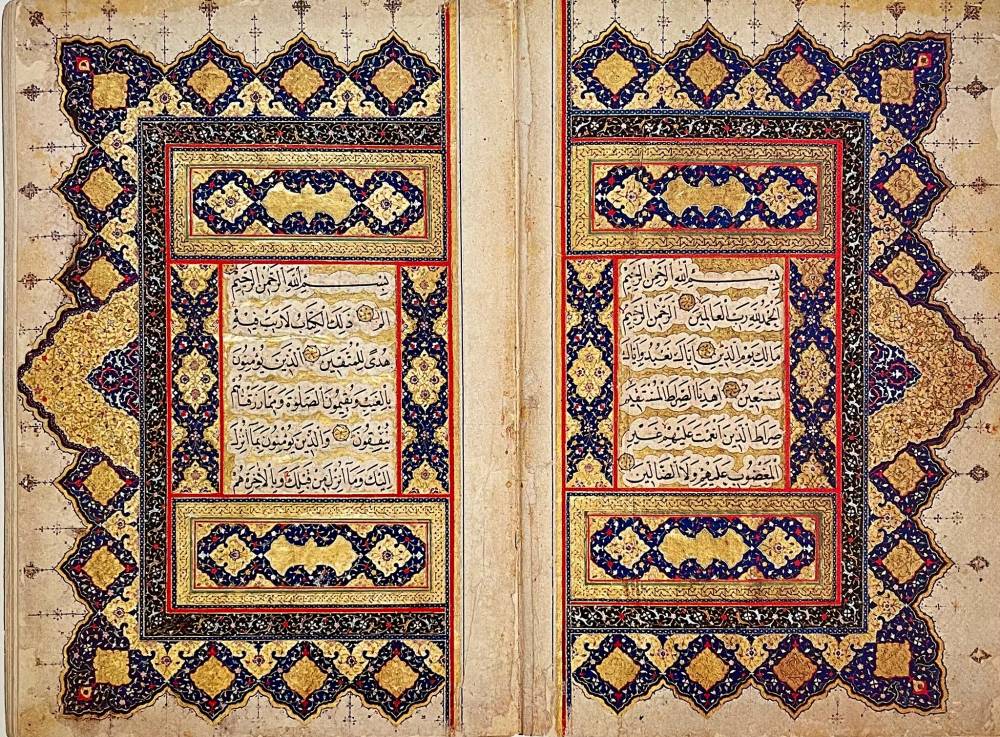 بسم الله الرحمن الرحيم
الحمد لله رب العالمين الرحمن الرحيم
مالك يوم الدين اياك نعبد واياك
نستعين اهدنا الصراط المستقيم
صراط الذين انعمت عليهم غير
المغضوب عليهم ولا الضالين
بسم الله الرحمن الرحيم
الم ذلك الكتاب لا ريب فيه
هدى للمتقين الذين يومنون
بالغيب ويقيمون الصلوة ومما رزقناهم
ينفقون والذين يومنون بما انزل
اليك وما انزل من قبلك وبالاخرة هم